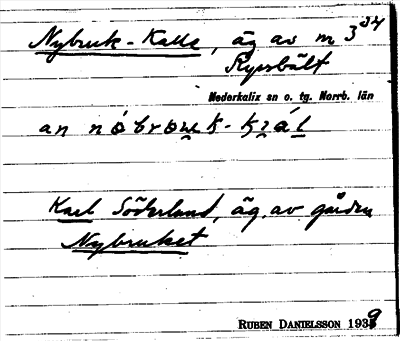 Nybruk-Kalle, äg av m 3²⁴
Ryssbält
Nederkalix sn o. tg. Norrb. län
an
Karl Söderlund, äg. av gården
Nybruket
RUBEN DANIELSSON 1939